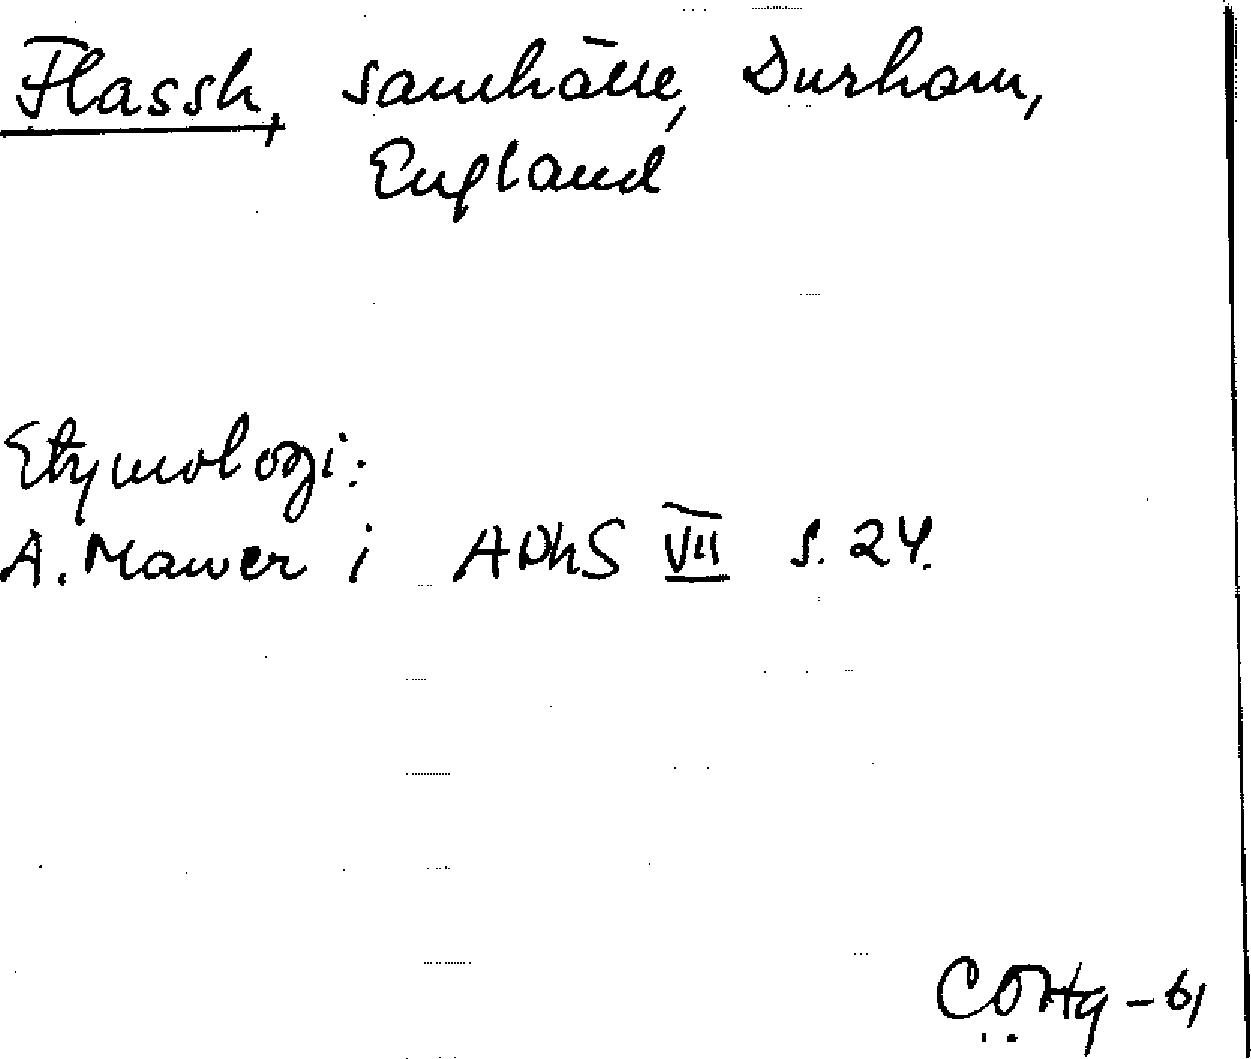 Flassh, samhälle, Durham,
England
Etymologi:
A. Mawer i ANhS VII s. 24.
COHq - 61